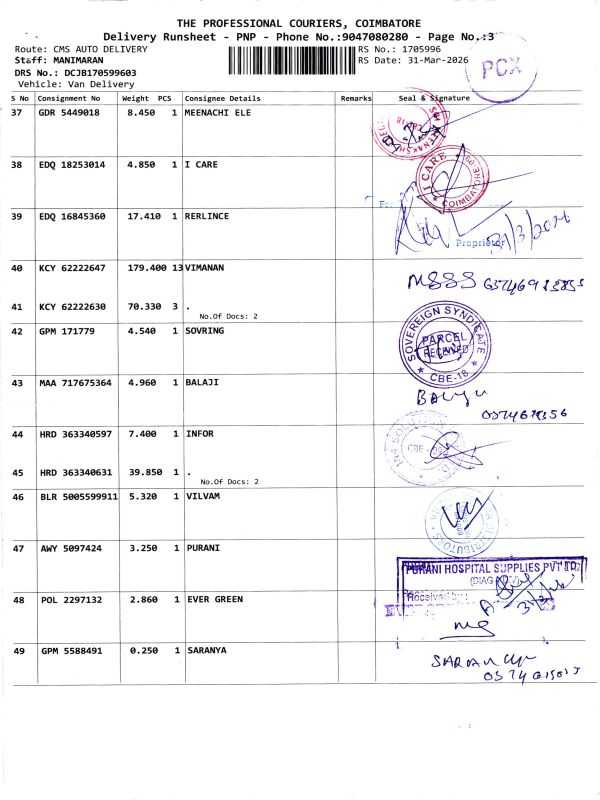 THE PROFESSIONAL COURIERS, COIMBATORE
Delivery Runsheet - PNP - Phone No.:9047080280 - Page No.:3
Route: CMS AUTO DELIVERY
RS No.: 1705996
Staff: MANIMARAN
RS Date: 31-Mar-2026
DRS No.: DCJB170599603
Vehicle: Van Delivery
PCX
S No Consignment No Weight PCS Consignee Details Remarks Seal & Signature
37 GDR 5449018 8.450 1 MEENACHI ELE
38 EDQ 18253014 4.850 1 I CARE
I CARE
COIMBATORE
39 EDQ 16845360 17.410 1 RERLINCE
For
31/3/2026
Proprietor
40 KCY 62222647 179.400 13 VIMANAN
41 KCY 62222630 70.330 3 .
No.Of Docs: 2
42 GPM 171779 4.540 1 SOVRING
SOVEREIGN SYNDICATE
PARCEL
RECEIVED
CBE-18
43 MAA 717675364 4.960 1 BALAJI
44 HRD 363340597 7.400 1 INFOR
45 HRD 363340631 39.850 1 .
No.Of Docs: 2
46 BLR 5005599911 5.320 1 VILVAM
47 AWY 5097424 3.250 1 PURANI
PURANI HOSPITAL SUPPLIES PVT LTD.
Received by:
48 POL 2297132 2.860 1 EVER GREEN
49 GPM 5588491 0.250 1 SARANYA